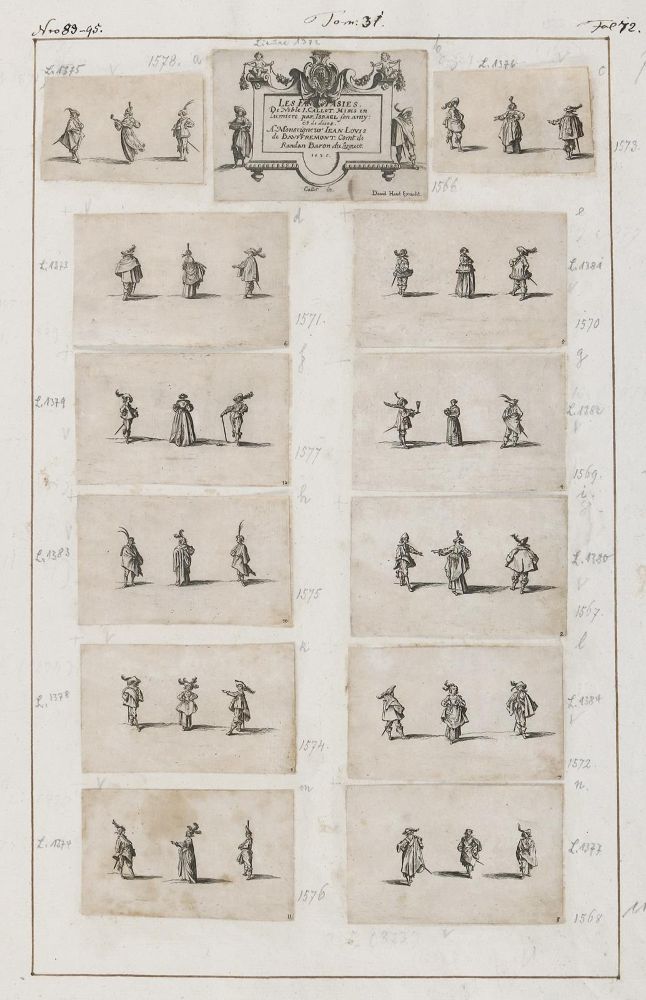 Nro 83-95.
Tom: 31.
Fol 72.
L. 1375
1578. a
1372
b
L. 1376
c
1573.
LES FANTAISIES.
De Noble I. CALLOT. Mises en
lumiere par ISRAEL son amy:
Et dediées.
A Monseigneur IEAN LOUIS
de BAUFFREMONT. Conte de
Randan Baron du Luguet.
1635.
Callot in.
1566
d
L. 1373
6
1571.
e
L. 1381
5
1570
f
L. 1379
12
1577
g
L. 1382
4
1569.
h
L. 1383
10
1575
i.
L. 1380
2
1567.
k
L. 1378
1574.
l
L. 1384
7
1572.
m
L. 1374
11
1576
n.
L. 1377
3
1568